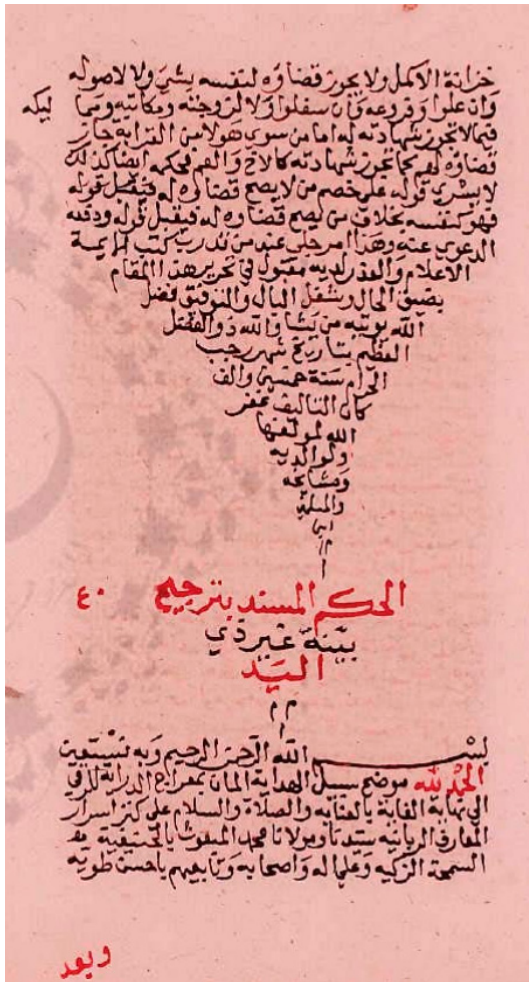 خزانة الاكمل ولا يجوز قضاؤه لنفسه بشئ ولا لاصوله
وان علوا وفروعه وان سفلوا ولا لزوجته ومكاتبه وتما ليكه
فيما لا تجوز شهادته له اما من سوى هولا من القرابة جاز
قضاؤه لهم كما تجوز شهادته كالاخ والعم فحكمه ايضا كذلك
لا يسري قوله على خصم من لا يصح قضاؤه له فيقبل قوله
فهو كنفسه بخلاف من يصح قضاوه له فيقبل قوله ودفعه
الدعوى عنه وهذا امر جلي عند من تدرب كتب ائمة
الاعلام والعذر لديه مقبول في تحرير هذا المقام
بضيق الحال وشغل البال والتوفيق فضل
الله يوتيه من يشا والله ذو الفضل
العظيم بتاريخ شهر رجب
الحرام سنة خمسين والف
كان التاليف غفر
الله لمولفها
ولوالديه
ومشايخه
والمسلمين
امين
م
الحكم المسند بترجيح ٤٠
بينة غير ذي
اليد
م م
بسم الله الرحمن الرحيم وبه نستعين
الحمد لله موضح سبيل الهداية المان بمعراج الدراية للرقي
الى نهاية الغاية بالعناية والصلاة والسلام على كنز اسرار
المعارف الربانية سيدنا ومولانا محمد المبعوث بالحنيفية
السمحة الزكيه وعلى اله واصحابه وتابعيهم باحسن طويه
وبعد